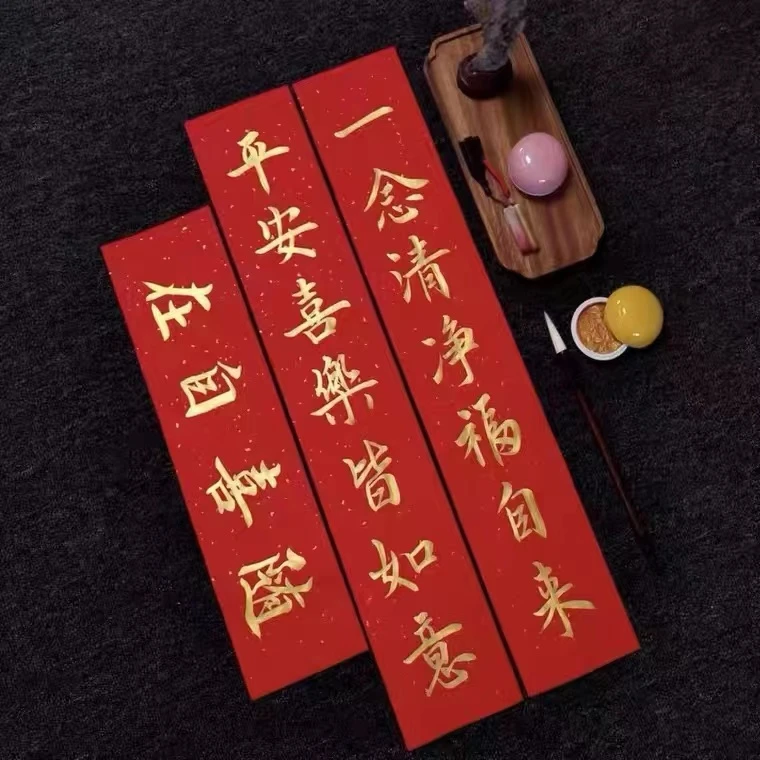 一念清净福自来
平安喜樂皆如意
随喜自在